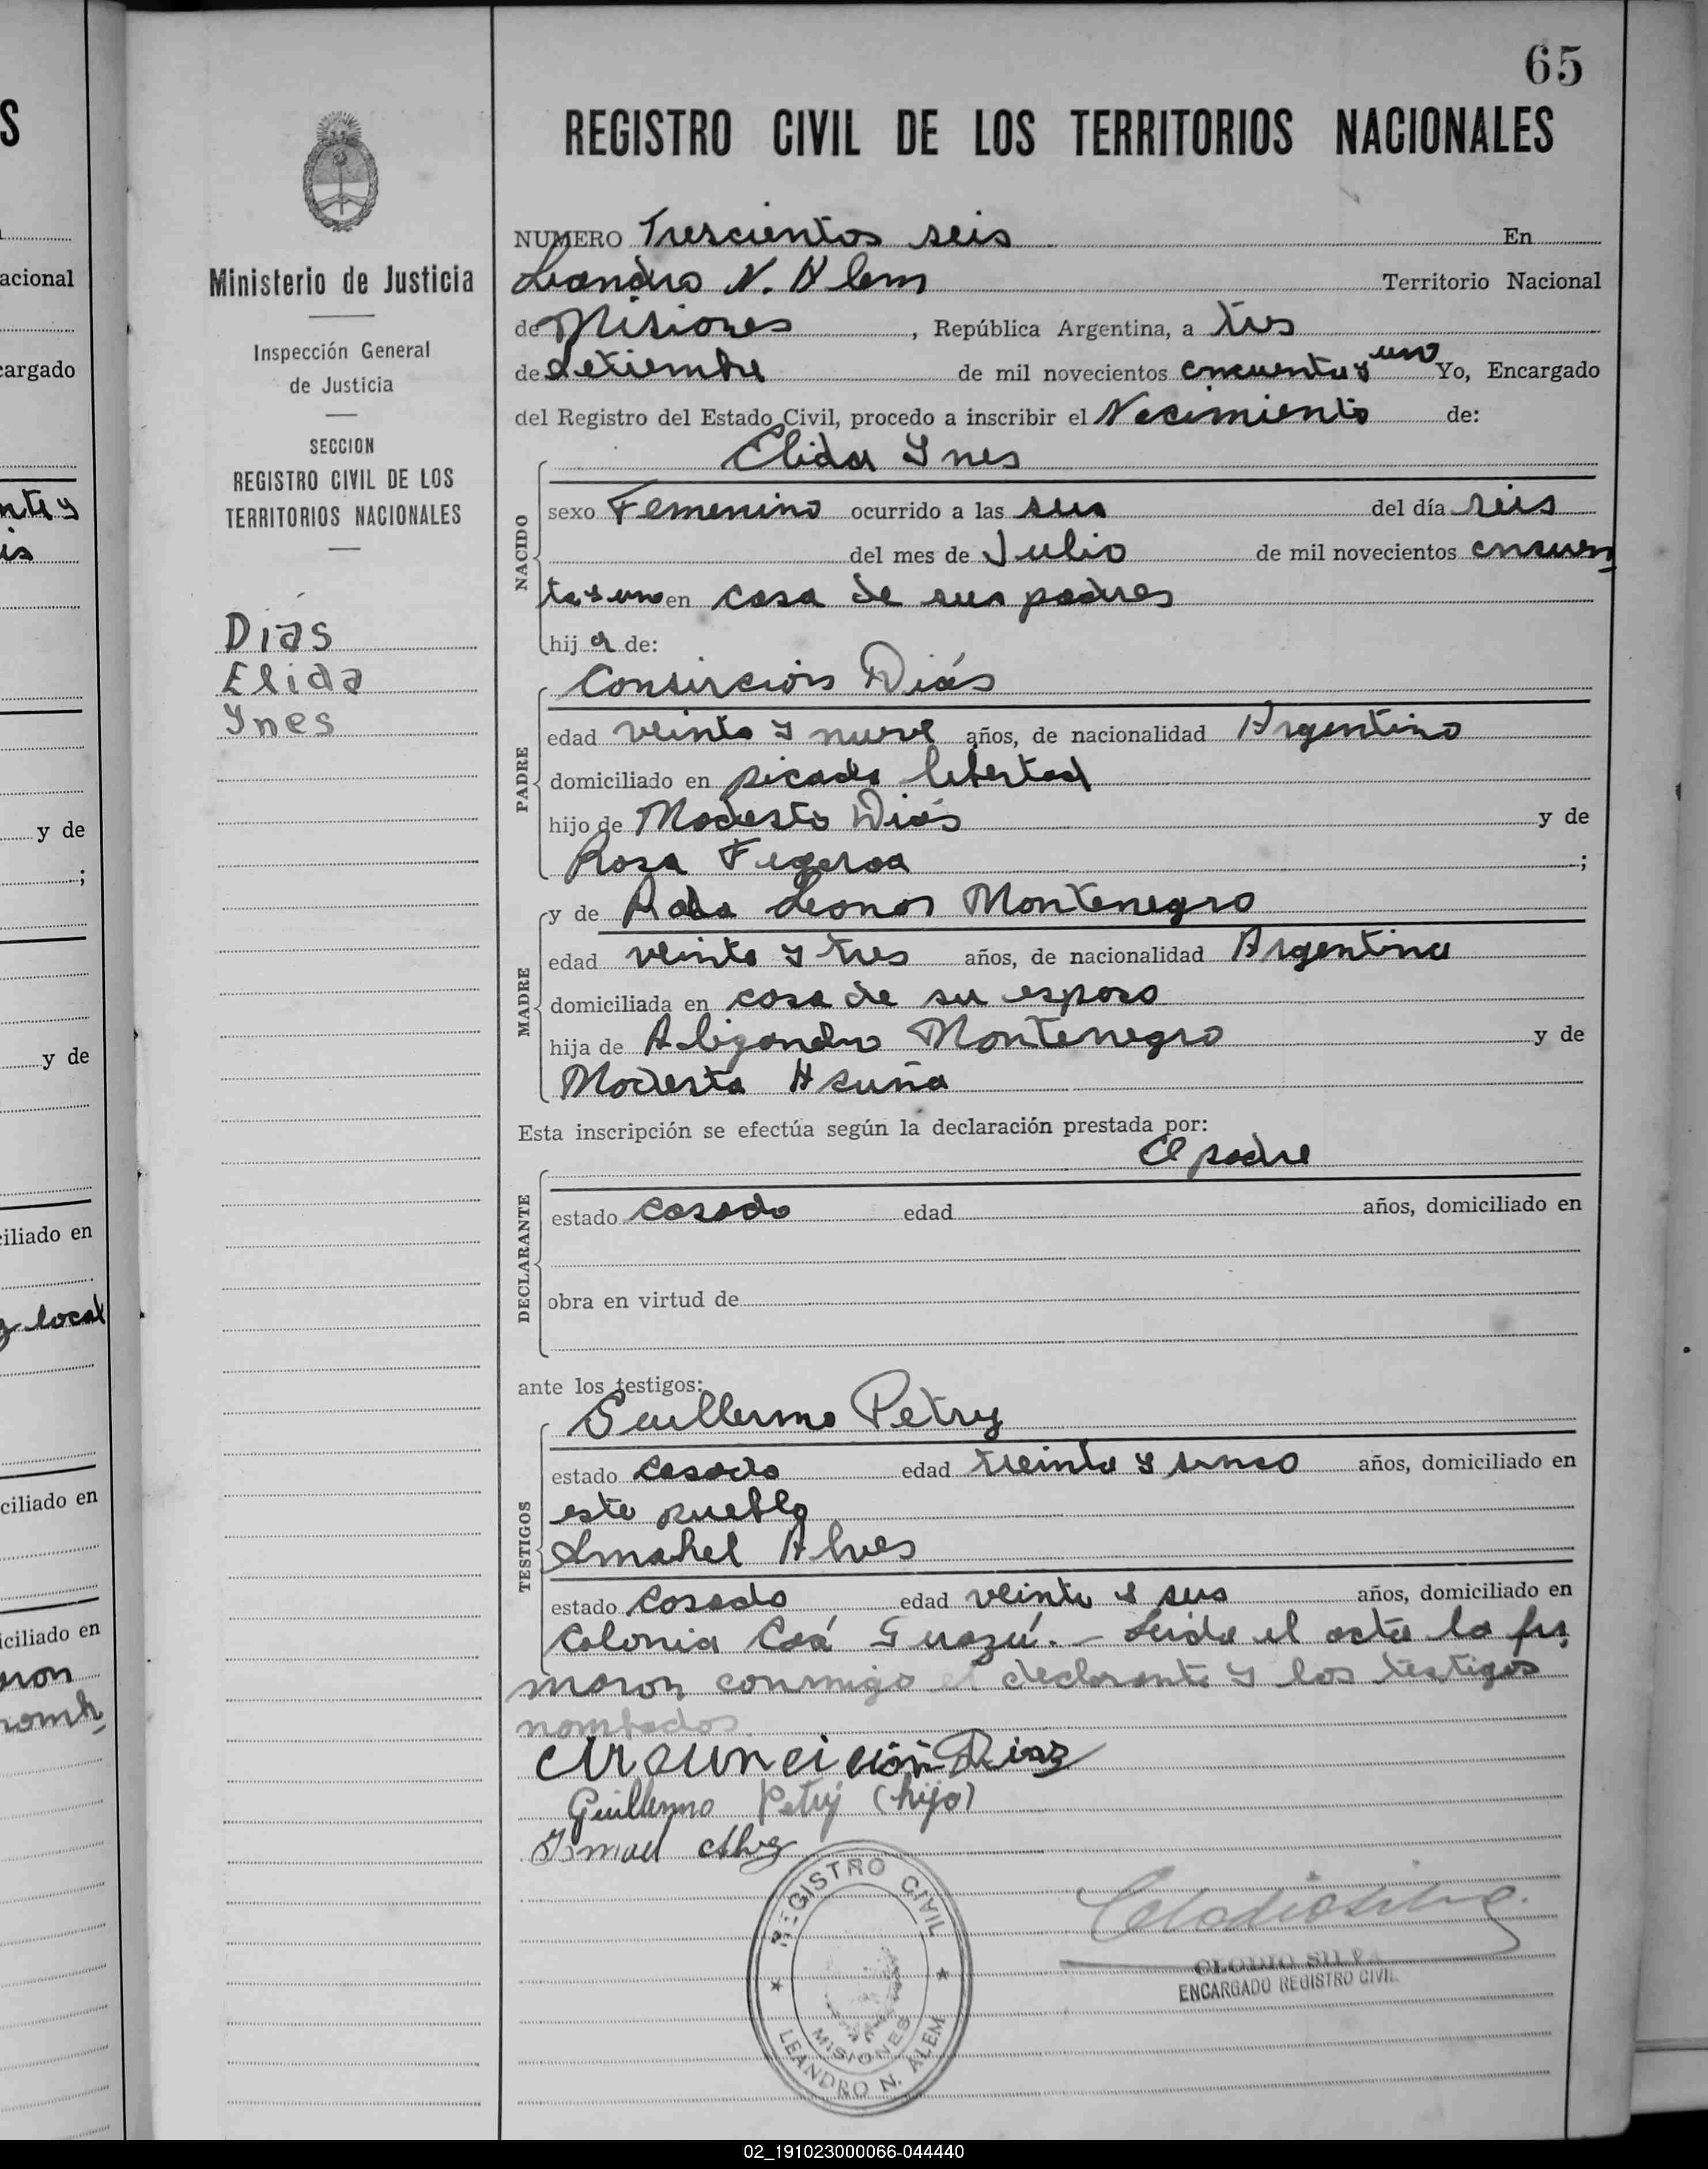 65
REGISTRO CIVIL DE LOS TERRITORIOS NACIONALES
Ministerio de Justicia
Inspección General
de Justicia
SECCION
REGISTRO CIVIL DE LOS
TERRITORIOS NACIONALES
Dias
Elida
Ynes
NUMERO Trescientos seis En
Leandro N. Alem Territorio Nacional
de Misiones, República Argentina, a tres
de Setiembre de mil novecientos cincuenta y uno Yo, Encargado
del Registro del Estado Civil, procedo a inscribir el Nacimiento de:
Elida Ynes
NACIDO
sexo Femenino ocurrido a las seis del día seis
del mes de Julio de mil novecientos cincuen
ta y uno en casa de sus padres
hija de:
Diás
PADRE
edad veinte y nueve años, de nacionalidad Argentino
domiciliado en picada libertad
hijo de Modesto Diás y de
Rosa Figeroa;
y de Leonor Montenegro
MADRE
edad veinte y tres años, de nacionalidad Argentina
domiciliada en casa de su esposo
hija de Aligandro Montenegro y de
Modesta Acuña
Esta inscripción se efectúa según la declaración prestada por:
El padre
DECLARANTE
estado casado edad años, domiciliado en
obra en virtud de
ante los testigos:
Guillermo Petry
TESTIGOS
estado casado edad treinta y sinco años, domiciliado en
este pueblo
Ismahel Alves
estado Casado edad veinte y seis años, domiciliado en
Colonia Caá Guazú.- Leida el acta la fir
maron conmigo el declarante y los testigos
nombrados
Diaz
Guillermo Petry (hijo)
Ismael Alvez
REGISTRO CIVIL
MISIONES
LEANDRO N. ALEM
Clodiosilva
CLODIO SILVA
ENCARGADO REGISTRO CIVIL
S
acional
cargado
y de
;
y de
ciliado en
local
ciliado en
iciliado en
aron
02_191023000066-044440